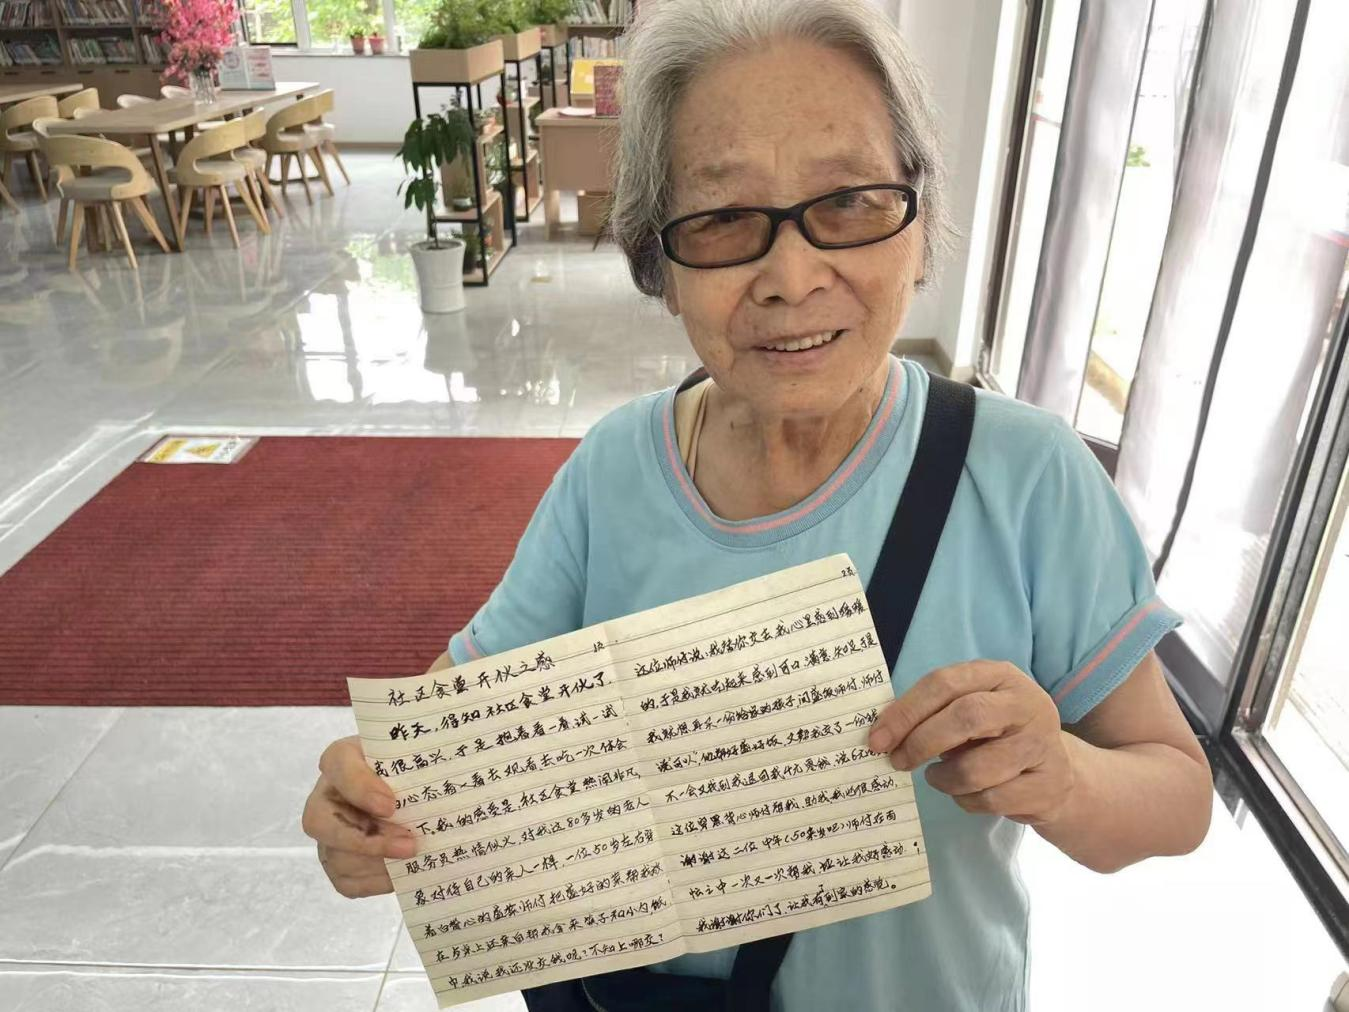 1页
社区食堂开伙之感
昨天，得知社区食堂开伙了，
我很高兴，于是抱着看一看试一试
的心态看一看去观看去吃一次体会
一下，我的感受是社区食堂热闹非凡，
服务员热情似火，对我这80多岁的老人
象对待自己的亲人一样，一位50岁左右穿
着白背心的盛菜师付把盛好的菜帮我放
在桌上还亲自帮我拿来筷子和小勺，
中，我说我还没交钱呢？不知上哪交？
2页
这位师付说：我替你交去，我心里感到暖暖
的，于是我就吃起来感到可口，满意，知足，于是
我就想再买一份给家的孩子，问盛饭师付，师付
说可以”，他帮好盛好饭，又帮我交了一份钱
不一会又找到我退回我4元零钱，说6元
这位穿黑背心师付帮我，助我，我也很感动，
谢谢这二位中年（50来岁吧）师付在百
忙之中一次又一次帮我，让我好感动；
我谢谢你们了，让我有到家的感觉。